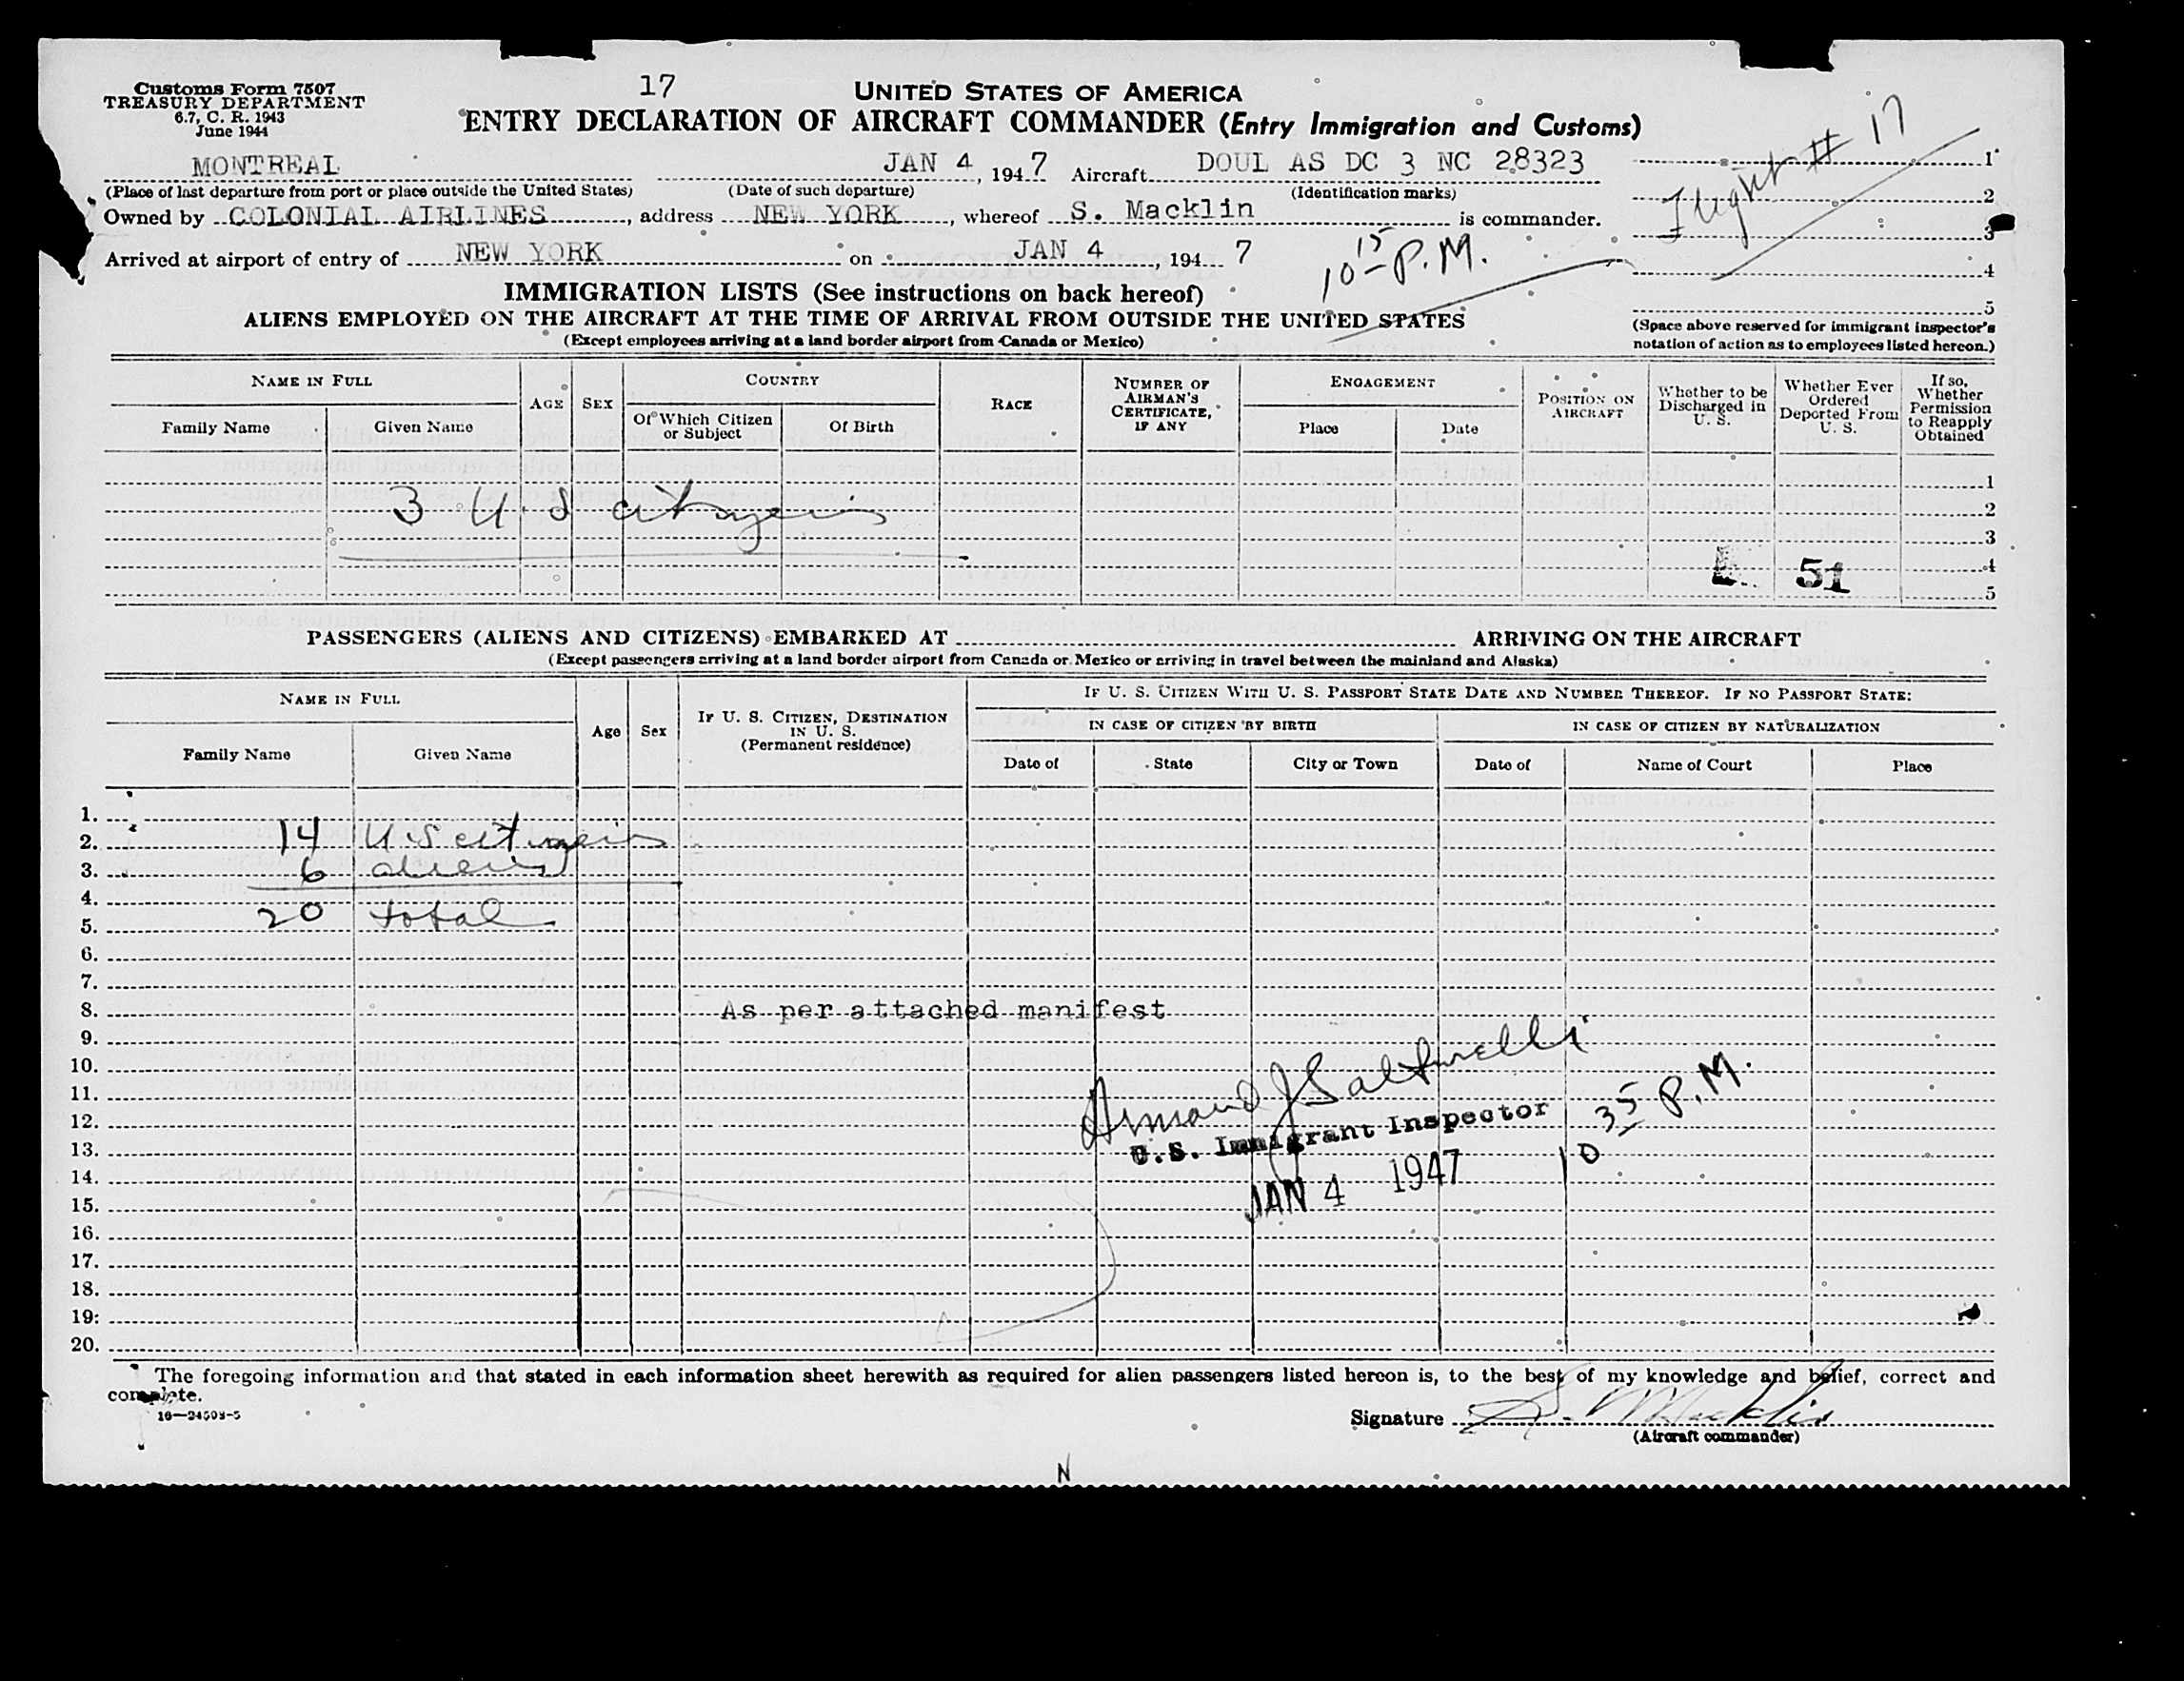 Customs Form 7507
TREASURY DEPARTMENT
6.7, C. R. 1943
June 1944
17
UNITED STATES OF AMERICA
ENTRY DECLARATION OF AIRCRAFT COMMANDER (Entry Immigration and Customs)
MONTREAL JAN 4, 1947 Aircraft DOUL AS DC 3 NC 28323
(Place of last departure from port or place outside the United States) (Date of such departure) (Identification marks)
Owned by COLONIAL AIRLINES, address NEW YORK, whereof S. Macklin is commander.
Arrived at airport of entry of NEW YORK on JAN 4, 194 7
10 15 P.M.
Flight # 17
1
2
3
4
5
(Space above reserved for immigrant inspector's notation of action as to employees listed hereon.)
IMMIGRATION LISTS (See instructions on back hereof)
ALIENS EMPLOYED ON THE AIRCRAFT AT THE TIME OF ARRIVAL FROM OUTSIDE THE UNITED STATES
(Except employees arriving at a land border airport from Canada or Mexico)
NAME IN FULL
Family Name Given Name
AGE SEX
COUNTRY
Of Which Citizen or Subject Of Birth
RACE
NUMBER OF AIRMAN'S CERTIFICATE, IF ANY
ENGAGEMENT
Place Date
POSITION ON AIRCRAFT
Whether to be Discharged in U. S.
Whether Ever Ordered Deported From U. S.
If so, Whether Permission to Reapply Obtained
1
3 U.S citizens 2
3
4
51
5
PASSENGERS (ALIENS AND CITIZENS) EMBARKED AT ARRIVING ON THE AIRCRAFT
(Except passengers arriving at a land border airport from Canada or Mexico or arriving in travel between the mainland and Alaska)
NAME IN FULL
Family Name Given Name
Age Sex
IF U. S. CITIZEN, DESTINATION IN U. S.
(Permanent residence)
IF U. S. CITIZEN WITH U. S. PASSPORT STATE DATE AND NUMBER THEREOF. IF NO PASSPORT STATE:
IN CASE OF CITIZEN BY BIRTH IN CASE OF CITIZEN BY NATURALIZATION
Date of State City or Town Date of Name of Court Place
1.
2. 14 U.S citizens
3. 6 aliens
4.
5. 20 total
6.
7.
8. As per attached manifest
9.
10.
11. Armand J
12.
U.S. Immigrant Inspector
10 35 P.M.
13.
14.
JAN 4 1947
15.
16.
17.
18.
19.
20.
The foregoing information and that stated in each information sheet herewith as required for alien passengers listed hereon is, to the best of my knowledge and belief, correct and
complete.
16—24503-5
Signature S. Macklin
(Aircraft commander)
N